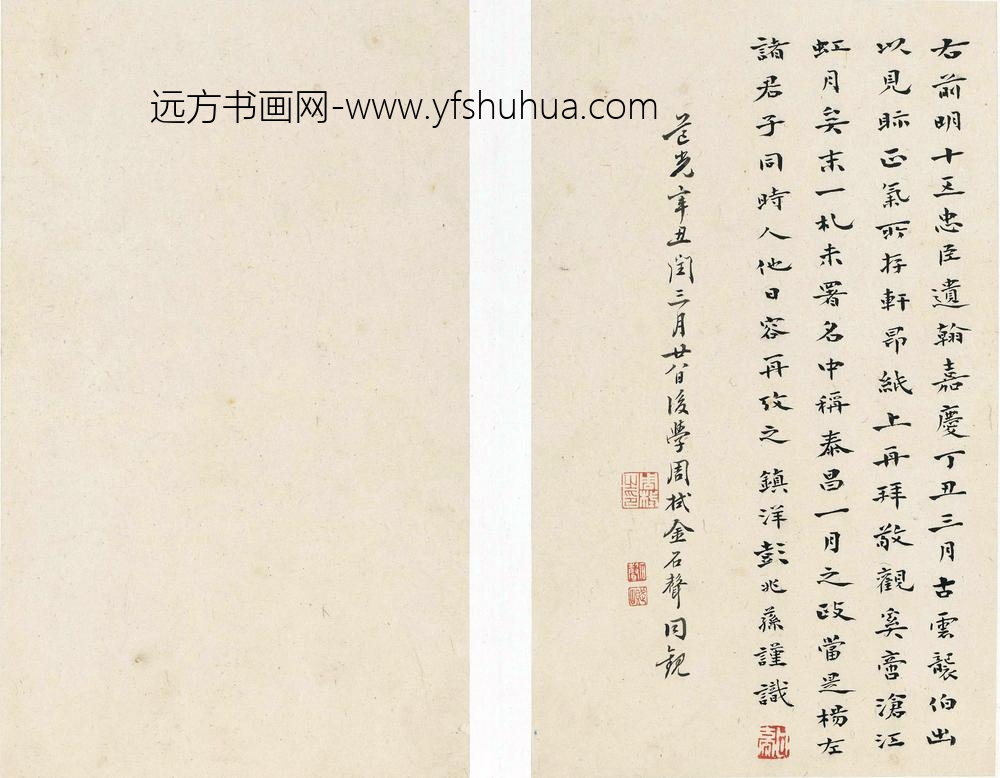 远方书画网-www.yfshuhua.com
右前明十五忠臣遺翰嘉慶丁丑三月古雲襲伯出
以見眎正氣所存軒昂紙上再拜敬觀奚啻滄江
虹月矣末一札未署名中稱泰昌一月之政當是楊左
諸君子同時人他日容再攷之 鎮洋彭兆蓀謹識
道光辛丑閏三月廿八日後學周栻金石聲同觀